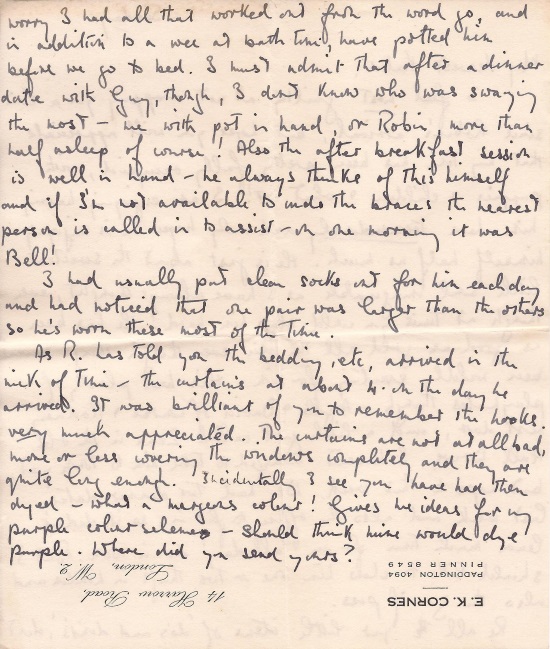 worry I had all that worked out from the word go, and
in addition to a wee at bath time, have potted him
before we go to bed. I must admit that after a dinner
date with Guy, though, I don't know who was swaying
the most – me with pot in hand, or Robin, more than
half asleep of course! Also the after breakfast session
is well in hand – he always thinks of this himself
and if I'm not available to undo the braces the nearest
person is called in to assist – on one morning it was
Bell!
I had usually put clean socks out for him each day
and had noticed that one pair was larger than the others
so he's worn these most of the time.
As R. has told you the bedding, etc, arrived in the
nick of time – the curtains at about 4. on the day he
arrived. It was brilliant of you to remember the hooks.
very much appreciated. The curtains are not at all bad,
more or less covering the windows completely and they are
quite long enough. Incidentally I see you have had them
dyed – what a gorgeous colour! Gives me ideas for my
purple colour scheme – should think mine would dye
purple. Where did you send yours?
E. K. CORNES
PADDINGTON 4094
PINNER 8549
14 Harrow Road,
London, W.2.